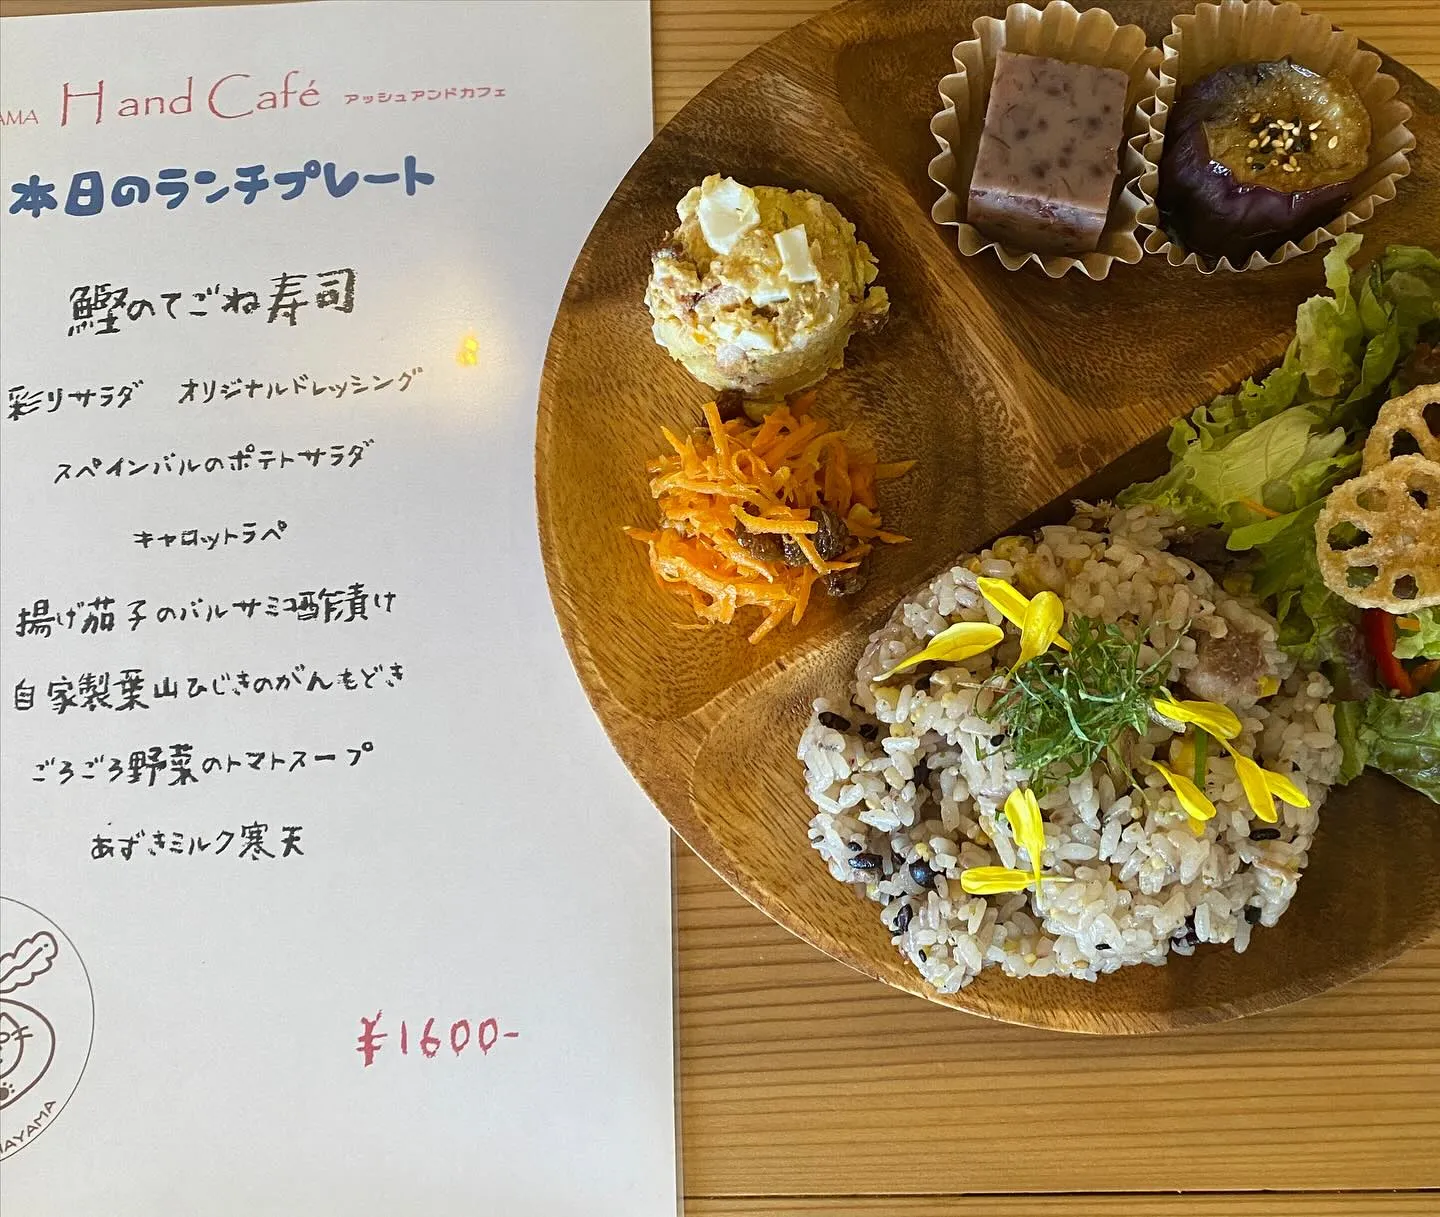 AMA Hand Café アッシュアンドカフェ
本日のランチプレート
鰹のてごね寿司
彩りサラダ オリジナルドレッシング
スペインバルのポテトサラダ
キャロットラペ
揚げ茄子のバルサミコ酢漬け
自家製葉山ひじきのがんもどき
ごろごろ野菜のトマトスープ
あずきミルク寒天
¥1600-
HAYAMA